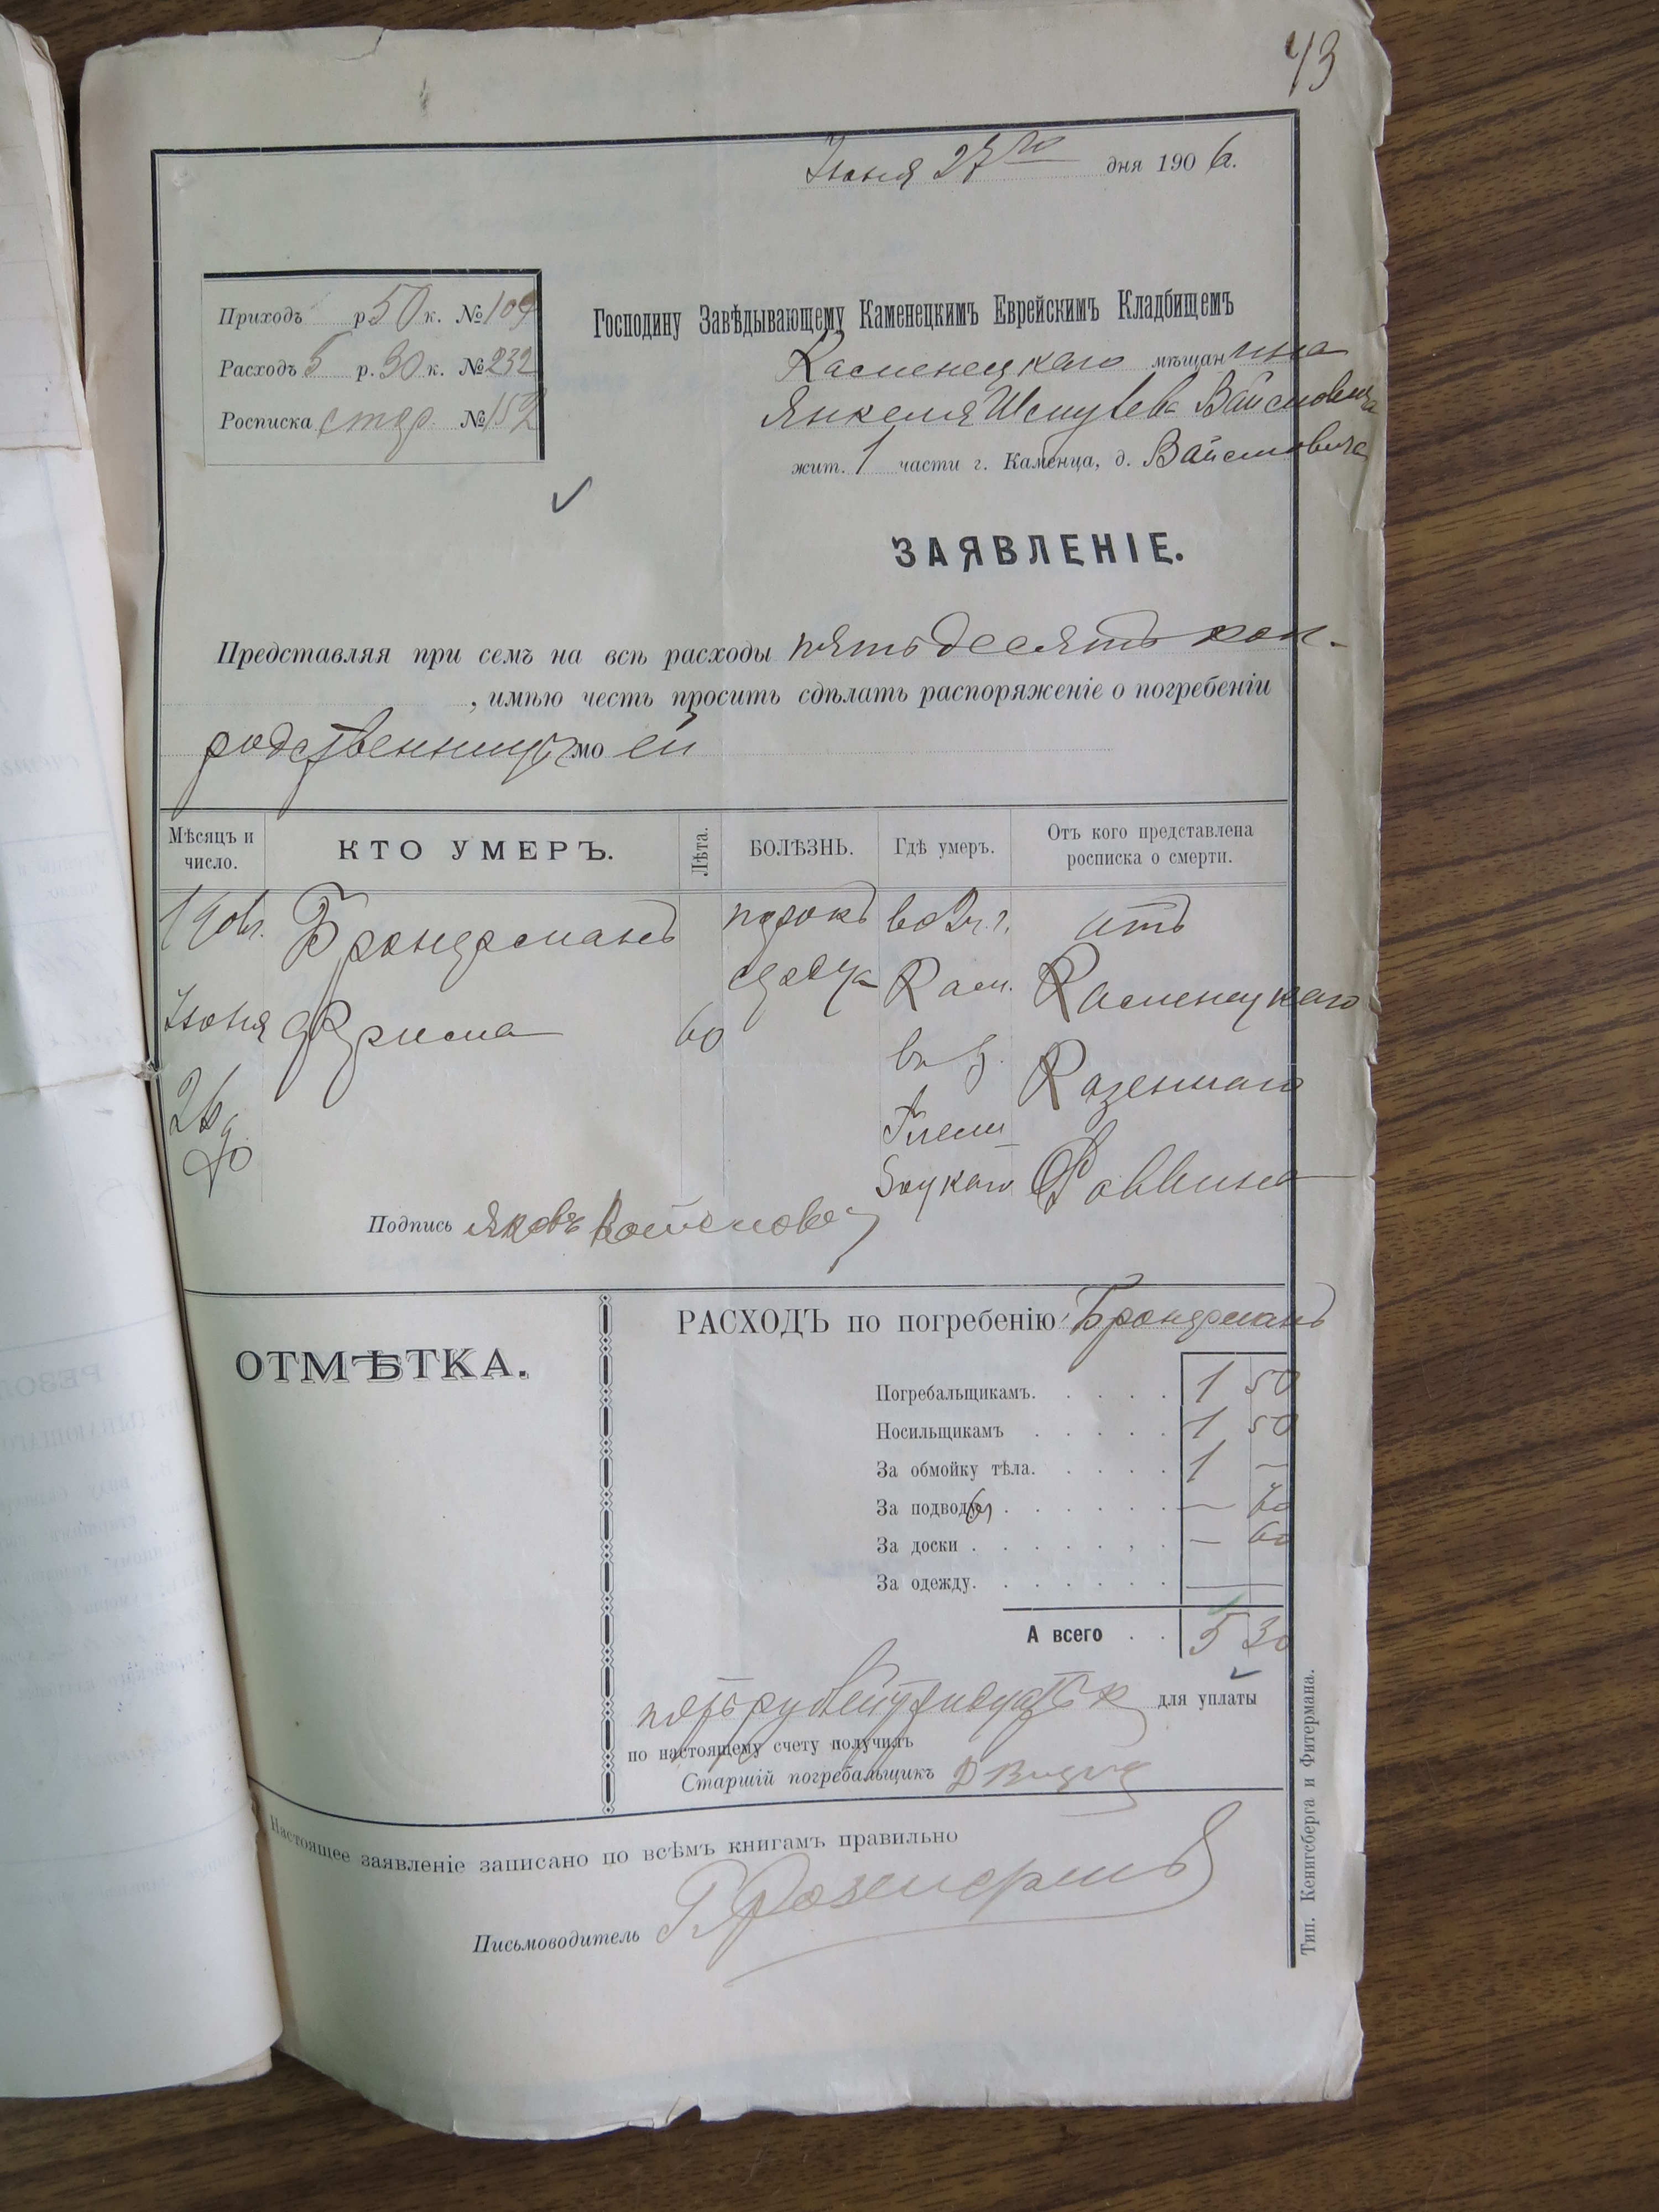 43
Іюня 27го дня 1906 г.
Приходъ р 50 к. №109
Расходъ 5 р. 30 к. №232
Росписка стар. №152
Господину Завѣдывающему Каменецкимъ Еврейскимъ Кладбищемъ
Каменецкаго мѣщанина
Янкеля Шмулева Вайсмовича
жит. 1 части г. Каменца, д. Вайсмовича
ЗАЯВЛЕНІЕ.
Представляя при семъ на всѣ расходы пятьдесятъ коп.
, имѣю честь просить сдѣлать распоряженіе о погребеніи
родственницы моей
Мѣсяцъ и число.
КТО УМЕРЪ.
Лѣта.
БОЛѢЗНЬ.
Гдѣ умеръ.
Отъ кого представлена росписка о смерти.
190 6 г. Бронфманъ порокъ въ г. отъ
сердца Кам. Каменецкаго
Іюня Фрима 60
Казеннаго
26
го Раввина
Подпись Яковъ
РАСХОДЪ по погребенію Бронфманъ
ОТМѢТКА.
Погребальщикамъ. 1 50
Носильщикамъ 1 50
За обмойку тѣла. 1 –
За подводы – 70
За доски – 60
За одежду. —
А всего 5 30
пять рублей тридцать к для уплаты
по настоящему счету получилъ
Старшій погребальщикъ
Настоящее заявленіе записано по всѣмъ книгамъ правильно
Письмоводитель
Тип. Кенигсберга и Фитермана.